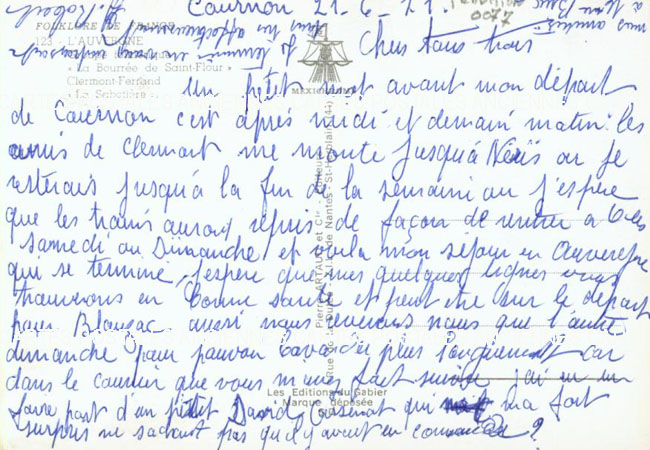 Cournon 21-6-71
Chers tous trois
FOLKLORE DE FRANCE
123 - L'AUVERGNE
« La Bourrée de Saint-Flour »
Clermont-Ferrand
« La Sabotière »
MEXICHROME
Un petit mot avant mon départ
de Cournon c'est après midi et demain matin les
amis de clermont me monte jusqu'à Néris ou je
resterais jusqu'à la fin de la semaine ou j'espère
que les trains auront repris de façon de rentrer a
samedi ou Dimanche et voila mon séjour en Auvergne
qui se termine, j'espère que mes quelques lignes vous
trouverons en bonne santé et peut etre sur le départ
pour Blauzac aussi nous reverons nous que l'autre
dimanche pour pouvoir bavarder plus longuement car
dans le courrier que vous m'avez fait suivre j'ai eu un
faire part d'un petit David qui m'a fort
surpris ne sachant pas qu'il y avait en commande ?
Les Editions du Gabier
Marque déposée